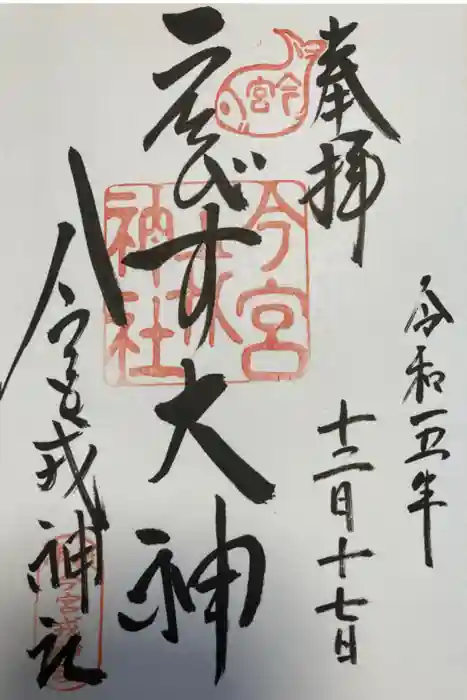 令和五年
十二月十七日
奉拝
今宮
今宮戎神社
ゑびす大神
今宮戎神社